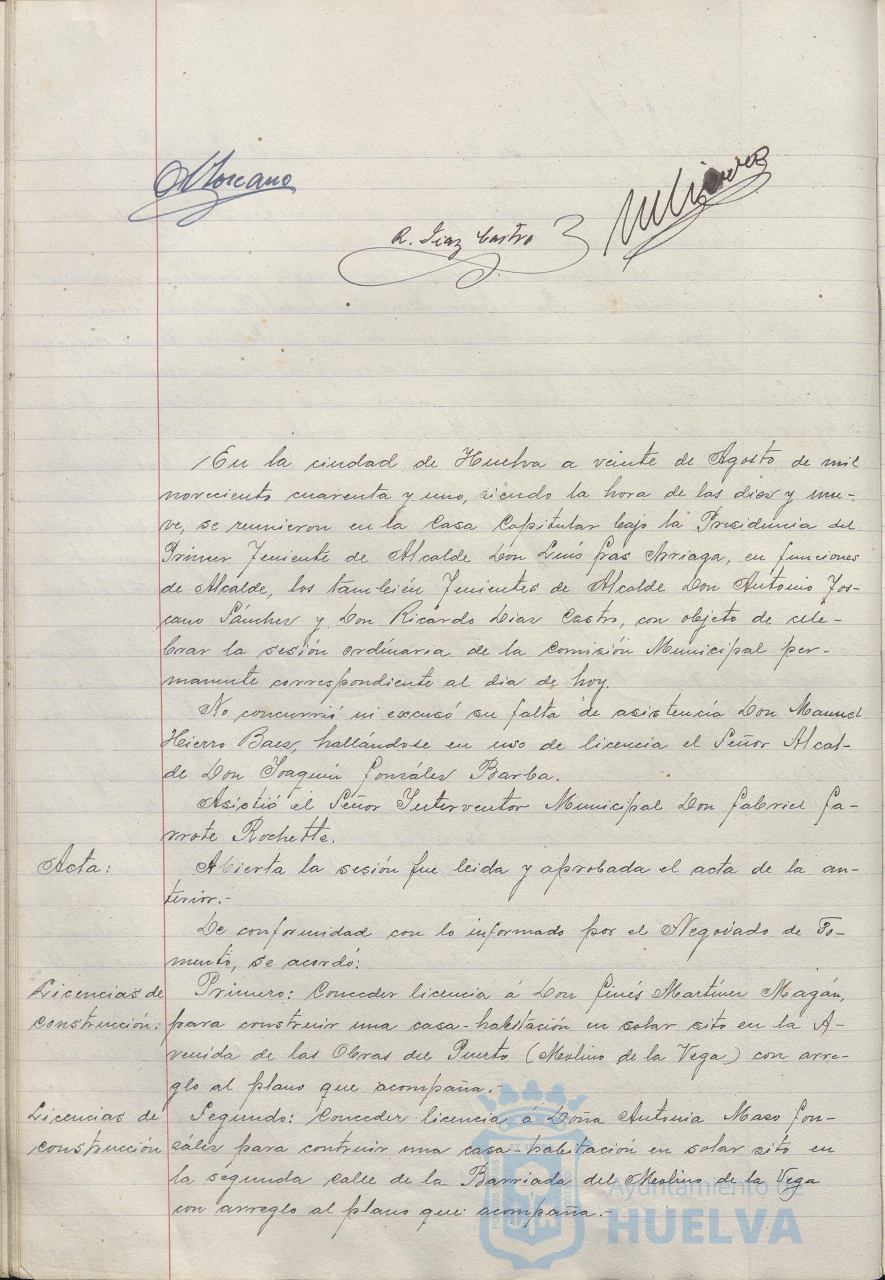 Toscano
R. Diaz Castro
En la ciudad de Huelva a veinte de Agosto de mil
novecientos cuarenta y uno, siendo la hora de las diez y nue-
ve, se reunieron en la Casa Capitular bajo la Presidencia del
Primer Teniente de Alcalde Don Luis Gras Arriaga, en funciones
de Alcalde, los también Tenientes de Alcalde Don Antonio Tos-
cano Sánchez y Don Ricardo Diaz Castro, con objeto de cele-
brar la sesión ordinaria de la Comisión Municipal per-
manente correspondiente al dia de hoy.
No concurrió ni excusó su falta de asistencia Don Manuel
Hierro Baez, hallándose en uso de licencia el Señor Alcal-
de Don Joaquin González Barba.
Asistió el Señor Interventor Municipal Don Gabriel Ga-
rrote Rochette.
Acta: Abierta la sesión fue leida y aprobada el acta de la an-
terior.-
De conformidad con lo informado por el Negociado de Fo-
mento, se acordó:
Licencias de Primero: Conceder licencia á Don Ginés Martínez Magán,
construcción: para construir una casa-habitación en solar sito en la A-
venida de las Obras del Puerto (Molino de la Vega) con arre-
glo al plano que acompaña.-
Licencias de Segundo: Conceder licencia á Doña Antonia Mazo Gon-
construcción zález para contruir una casa-habitación en solar sito en
la segunda calle de la Barriada del Molino de la Vega
con arreglo al plano que acompaña.-
Ayuntamiento de
HUELVA